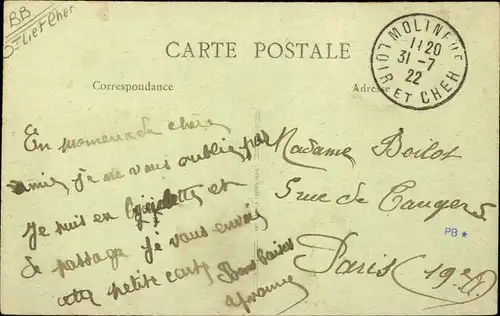 BB
Lie Cher
CARTE POSTALE
MOLINEUF
11 20
31 -7
22
LOIR ET CHER
Correspondance
Adresse
En promenade chère
amie je ne vous oublie pas
Je suis en et
de passage je vous envoie
cette petite carte
Bons baisers
Yvonne
Madame Boilot
5 rue de Tanger 5
Paris (19e A)
PB *